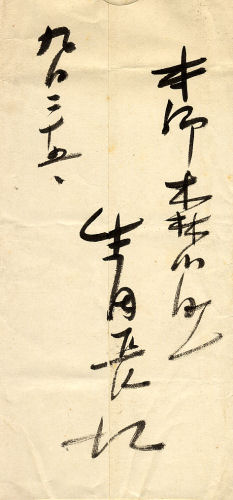 本郷森川町
生田長江
九月二十五、